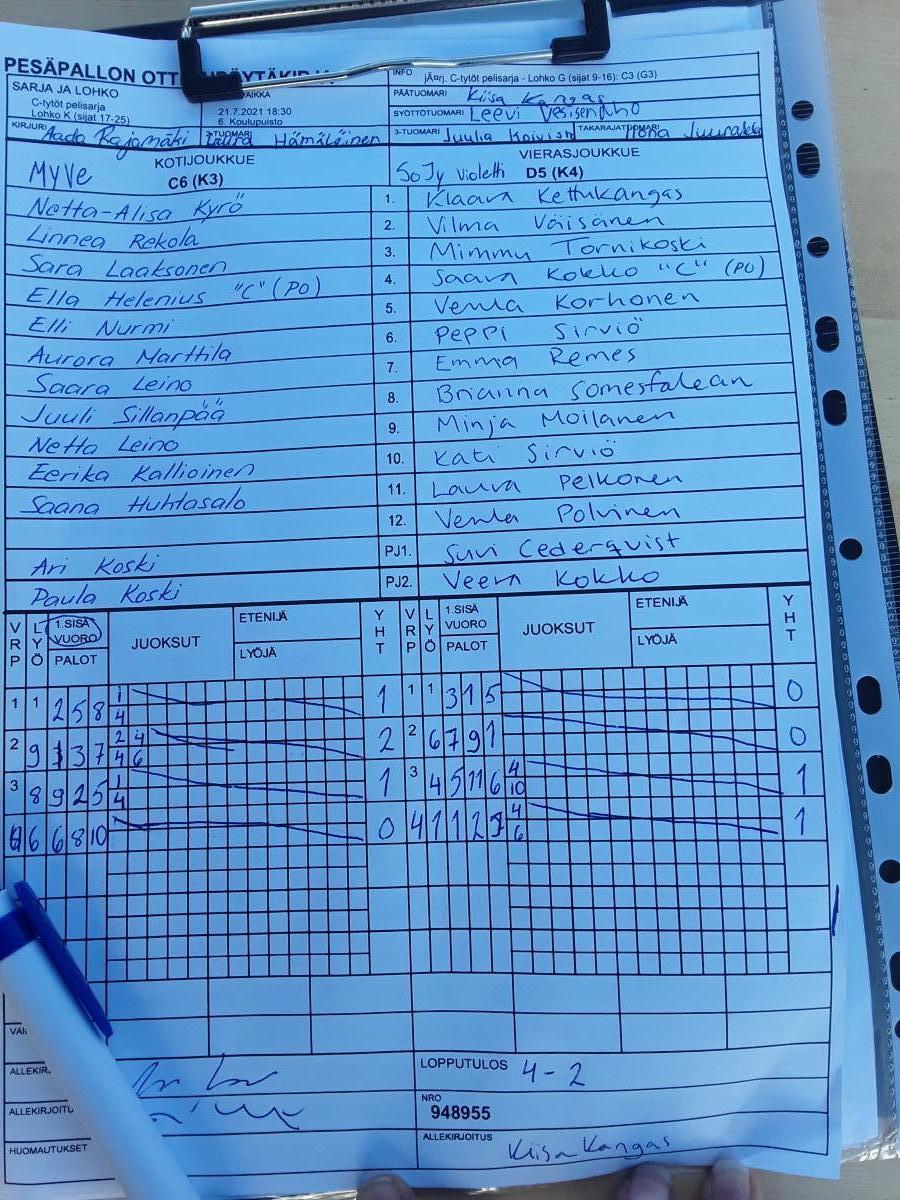 PESÄPALLON
INFO jÄ¤rj. C-tytöt pelisarja - Lohko G (sijat 9-16): C3 (G3)
SARJA JA LOHKO
C-tytöt pelisarja
Lohko K (sijat 17-25)
21.7.2021 18:30
6. Koulupuisto
PÄÄTUOMARI Kiisa Kangas
SYÖTTÖTUOMARI Leevi Vesisenaho
KIRJURI Aada Rajamäki 2-TUOMARI Laura Hämäläinen 3-TUOMARI Juulia Koivisto TAKARAJATUOMARI
KOTIJOUKKUE VIERASJOUKKUE
MyVe C6 (K3) SoJy Violetti D5 (K4)
Netta-Alisa Kyrö 1. Klaara Kettukangas
Linnea Rekola 2. Vilma Väisänen
Sara Laaksonen 3. Mimmu Tornikoski
Ella Helenius "C" (PO) 4. Saara Kokko "C" (PO)
Elli Nurmi 5. Venla Korhonen
Aurora Marttila 6. Peppi Sirviö
Saara Leino 7. Emma Remes
Juuli Sillanpää 8. Brianna Somesfalean
Netta Leino 9. Minja Moilanen
Eerika Kallioinen 10. Kati Sirviö
Saana Huhtasalo 11. Laura Pelkonen
12. Venla Polvinen
Ari Koski PJ1. Suvi Cederqvist
Paula Koski PJ2. Veera Kokko
VRP LYÖ 1.SISÄ VUORO PALOT JUOKSUT ETENIJÄ LYÖJÄ YHT VRP LYÖ 1.SISÄ VUORO PALOT JUOKSUT ETENIJÄ LYÖJÄ YHT
1 1 2 5 8 1 4 1 1 1 3 1 5 0
2 9 1 3 7 2 4 4 6 2 2 6 7 9 1 0
3 8 9 2 5 1 4 1 3 4 5 11 6 4 10 1
4 6 6 8 10 0 4 1 12 4 6 1
ALLEKIR. LOPPUTULOS 4-2
ALLEKIRJOITU NRO
948955
HUOMAUTUKSET ALLEKIRJOITUS Kiisa Kangas